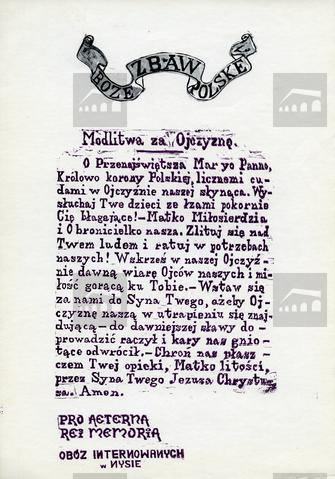 BOŻE ZBAW POLSKĘ
Modlitwa za Ojczyznę.
O Przenajświętsza Maryo Panno,
Królowo korony Polskiej, licznemi cu-
dami w Ojczyźnie naszej słynąca. Wy-
słuchaj Twe dzieci ze łzami pokornie
Cię błagające! – Matko Miłosierdzia
i Obronicielko nasza. Zlituj się nad
Twem ludem i ratuj w potrzebach
naszych! Wskrześ w naszej Ojczyź-
nie dawną wiarę Ojców naszych i mi-
łość gorącą ku Tobie. – Wstaw się
za nami do Syna Twego, ażeby Oj-
czyznę naszą w utrapieniu się znaj-
dującą – do dawniejszej sławy do –
prowadzić raczył i kary nas gnio –
tące odwrócił. – Chroń nas płasz –
czem Twej opieki, Matko litości,
przez Syna Twego Jezusa Chrystu-
sa. Amen.
PRO AETERNA
REI MEMORIA
OBÓZ INTERNOWANYCH
w NYSIE